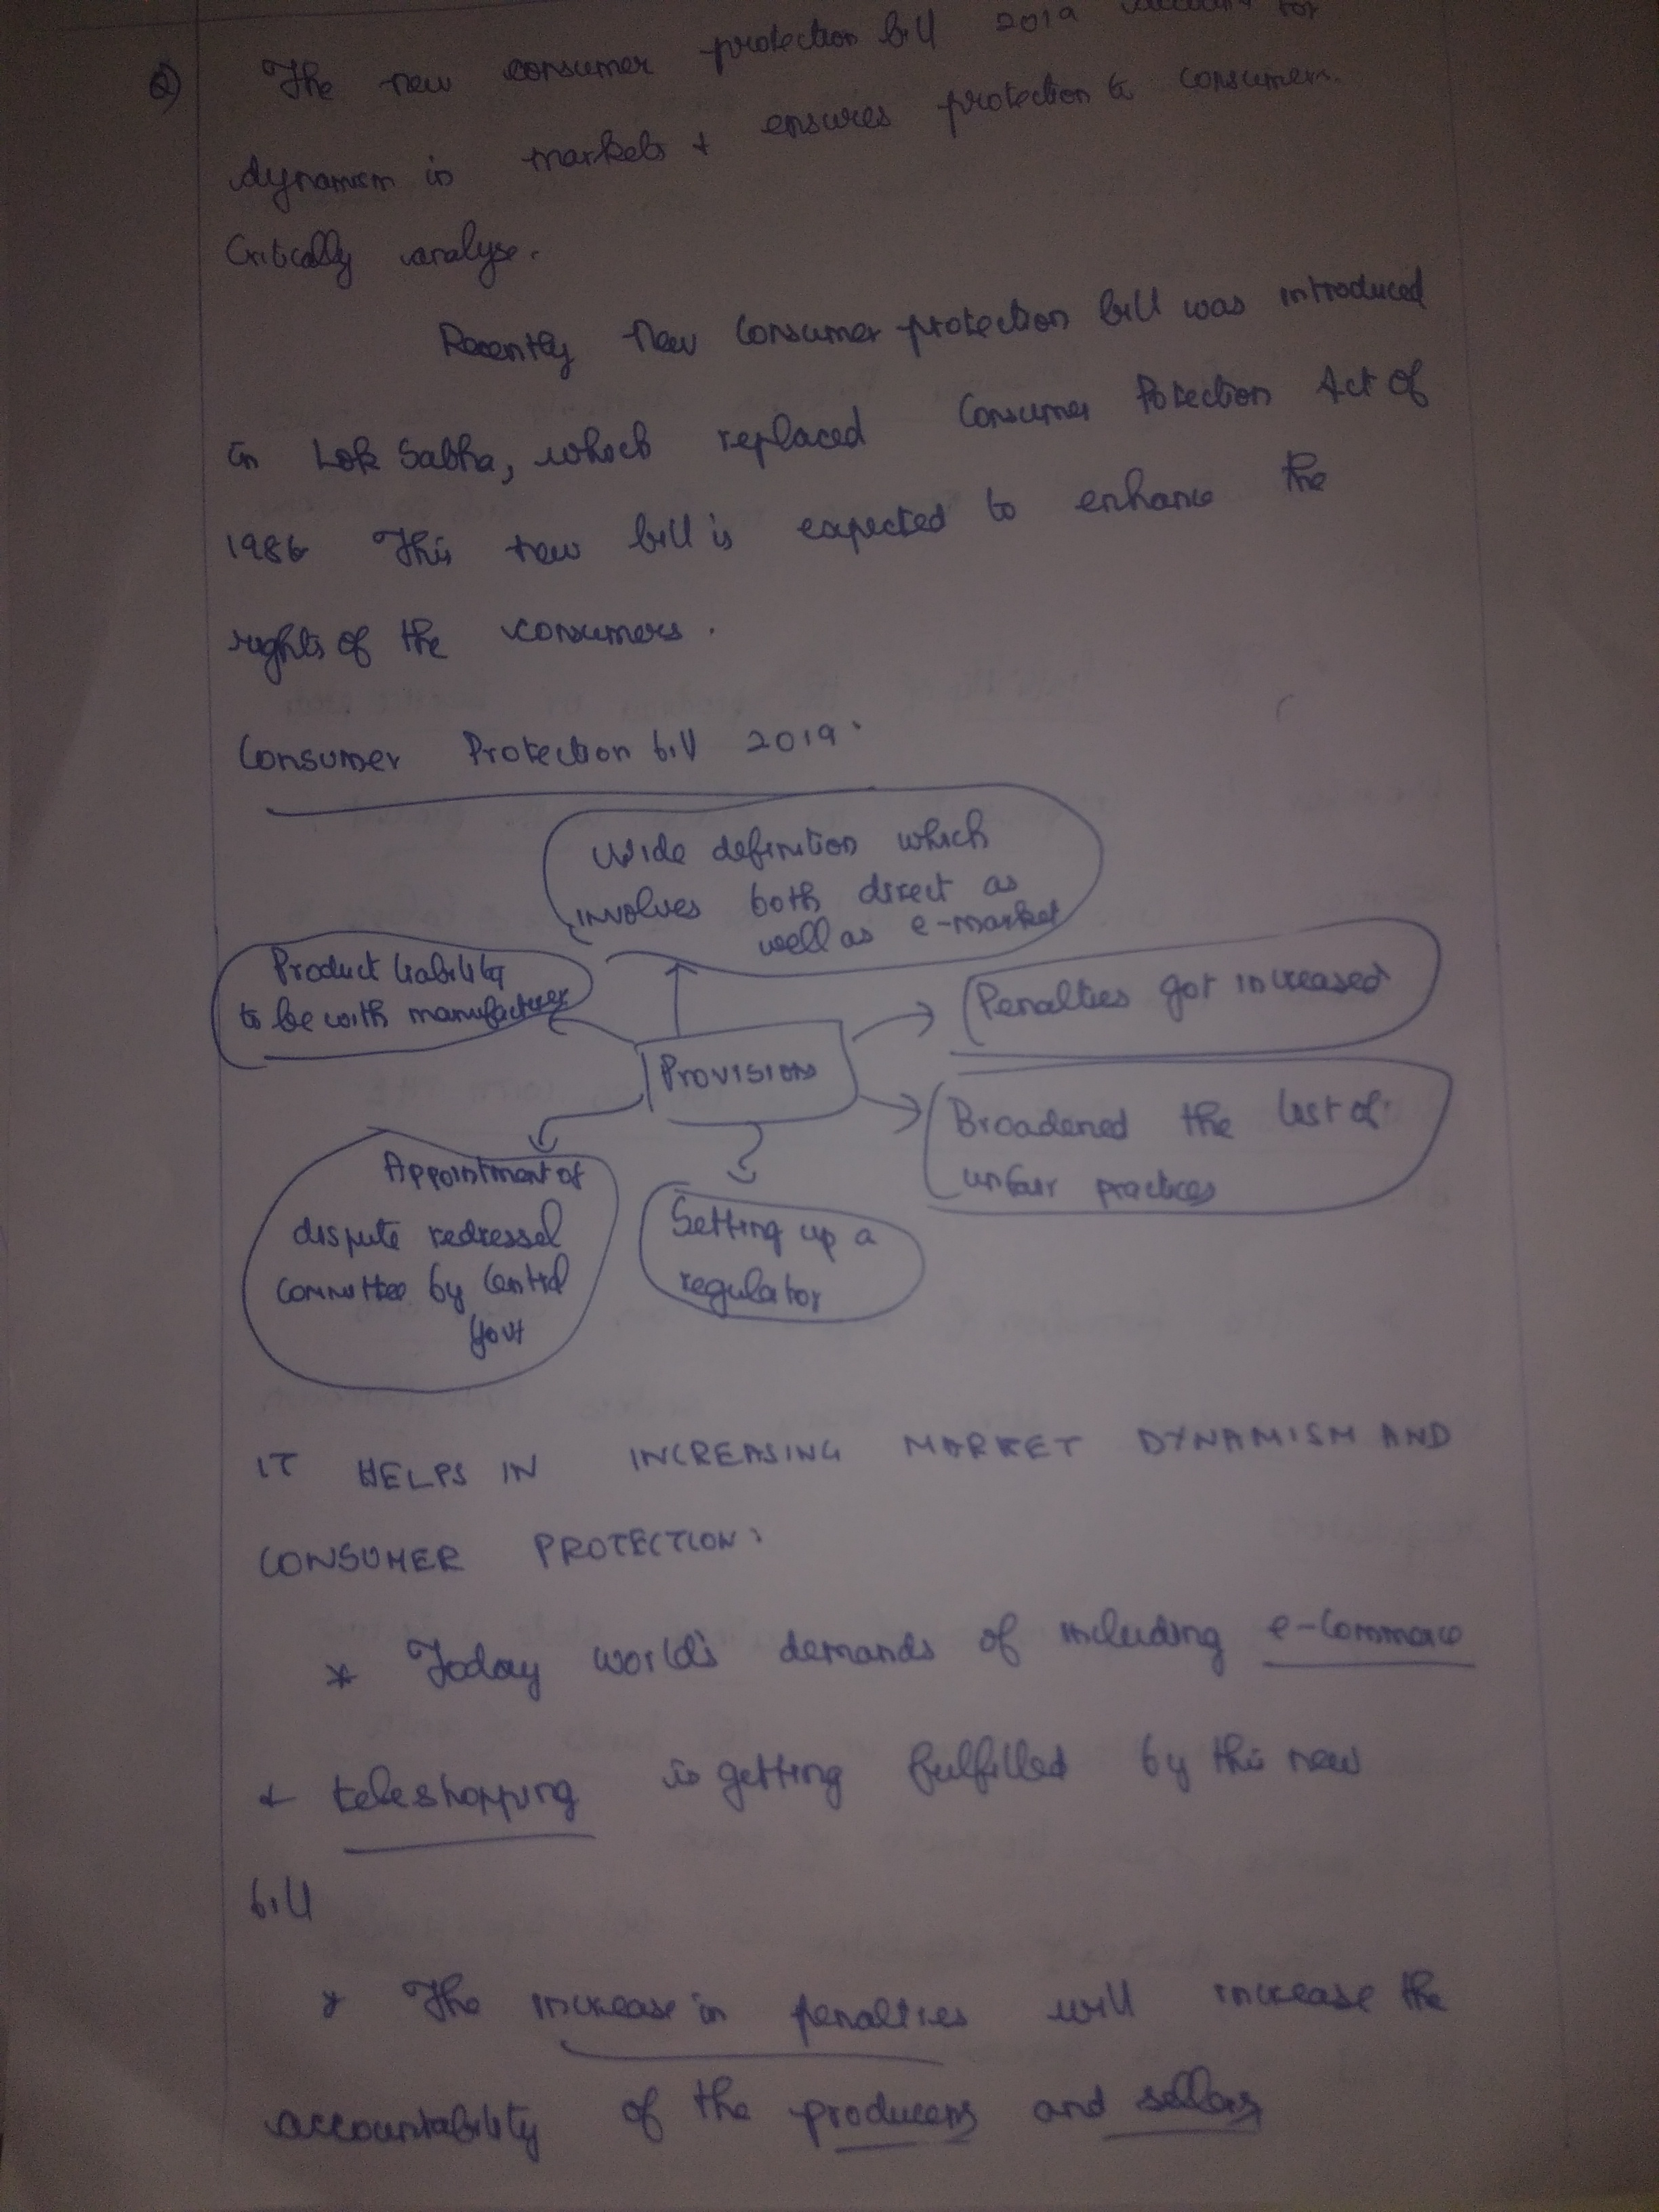 Q) The new consumer protection bill 2019 accounts for
dynamism in markets & ensures protection to consumers.
Critically analyse.
Recently new Consumer protection bill was introduced
in Lok Sabha, which replaced Consumer Potection Act of
1986 This new bill is expected to enhance the
rights of the consumers.
Consumer Protection bill 2019:
Wide definition which
involves both direct as
well as e-market
Product liability
to be with manufacturer
Penalties got increased
Provision
Broadened the list of
unfair practices
Appointment of
dispute redressal
committee by Central
Govt
Setting up a
regulator
IT HELPS IN INCREASING MARKET DYNAMISM AND
CONSUMER PROTECTION:
* Today world's demands of including e-commerce
& teleshopping is getting fulfilled by this new
bill
* The increase in penalties will increase the
accountability of the producers and sellers